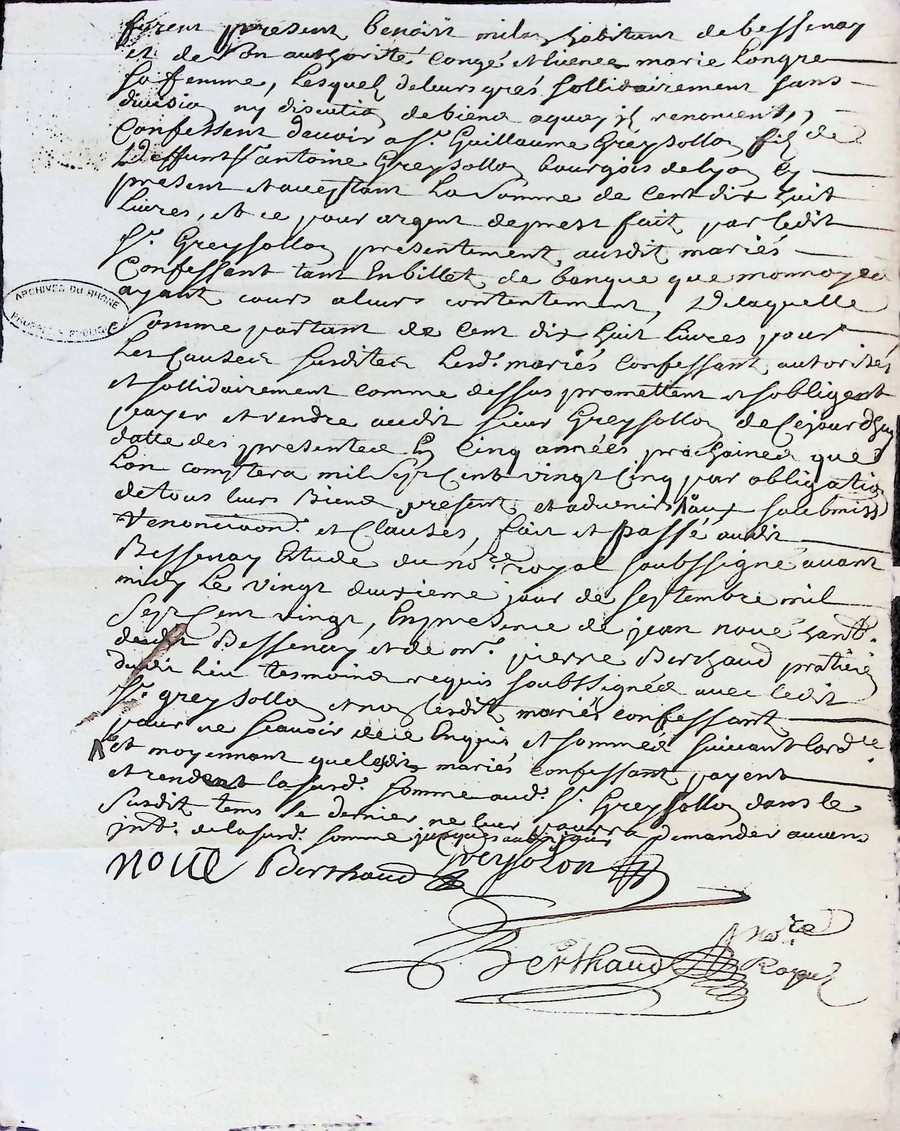 furent present benoist milan habitant de bessenay
et de son authorité congé et lisence marie Longre
sa femme, Lesquels de leurs grés sollidairement sans
division ny discution de biens aquoy ils renoncent,
Confessent devoir a Sr. Guillaume Greysollon fils de
Deffunt Sr antoine Greysollon bourgois de lyon cy
present et acceptant La Somme de Cent dix huit
Livres, et ce pour argent de prest fait par ledit
Sr. Greysollon présentement ausdit mariés
Confessant tant En billet de banque que monnoyes
ayant cours a leurs contentement, De laquelle
Somme partant de cent dix huit Livres pour
Les Causes susdites Lesd. mariés Confessant autorités
et sollidairement comme dessus promettent et sobligent
payer et rendre audit sieur Greysollon de Cejourdhuy
datte des presentes En Cinq années prochaines que
Lon comptera mil Sept Cent vingt Cinq par obligation
de tous leurs Biens present et advenir /\ aux soubmiss
Renonciaons et Clauses, fait et passé audit
Bessenay Etude du nore. royal soubssigné avant
midy Le vingt deuxieme jour de septembre mil
Sept Cent vingt, En presence de jean noué hant.
dudit Bessenay et de mr. pierre Berthaud praticien
dudit lieu tesmoins requis soubssignés avec ledit
Sr. greysollon et non lesdit mariés confessant
pour ne sçavoir de ce Enquis et sommés suivant lordce.
/\ et moyennant que lesdits mariés confessant payent
et rendent la susd. somme aud. Sr. Greysollon dans le
susdit tems Ce dernier ne leur pourra Demander aucun
int. de la susd. somme jusques audit jour
noué Berthaud Greysolon
Berthaud nore
Royal
ARCHIVES DU RHÔNE